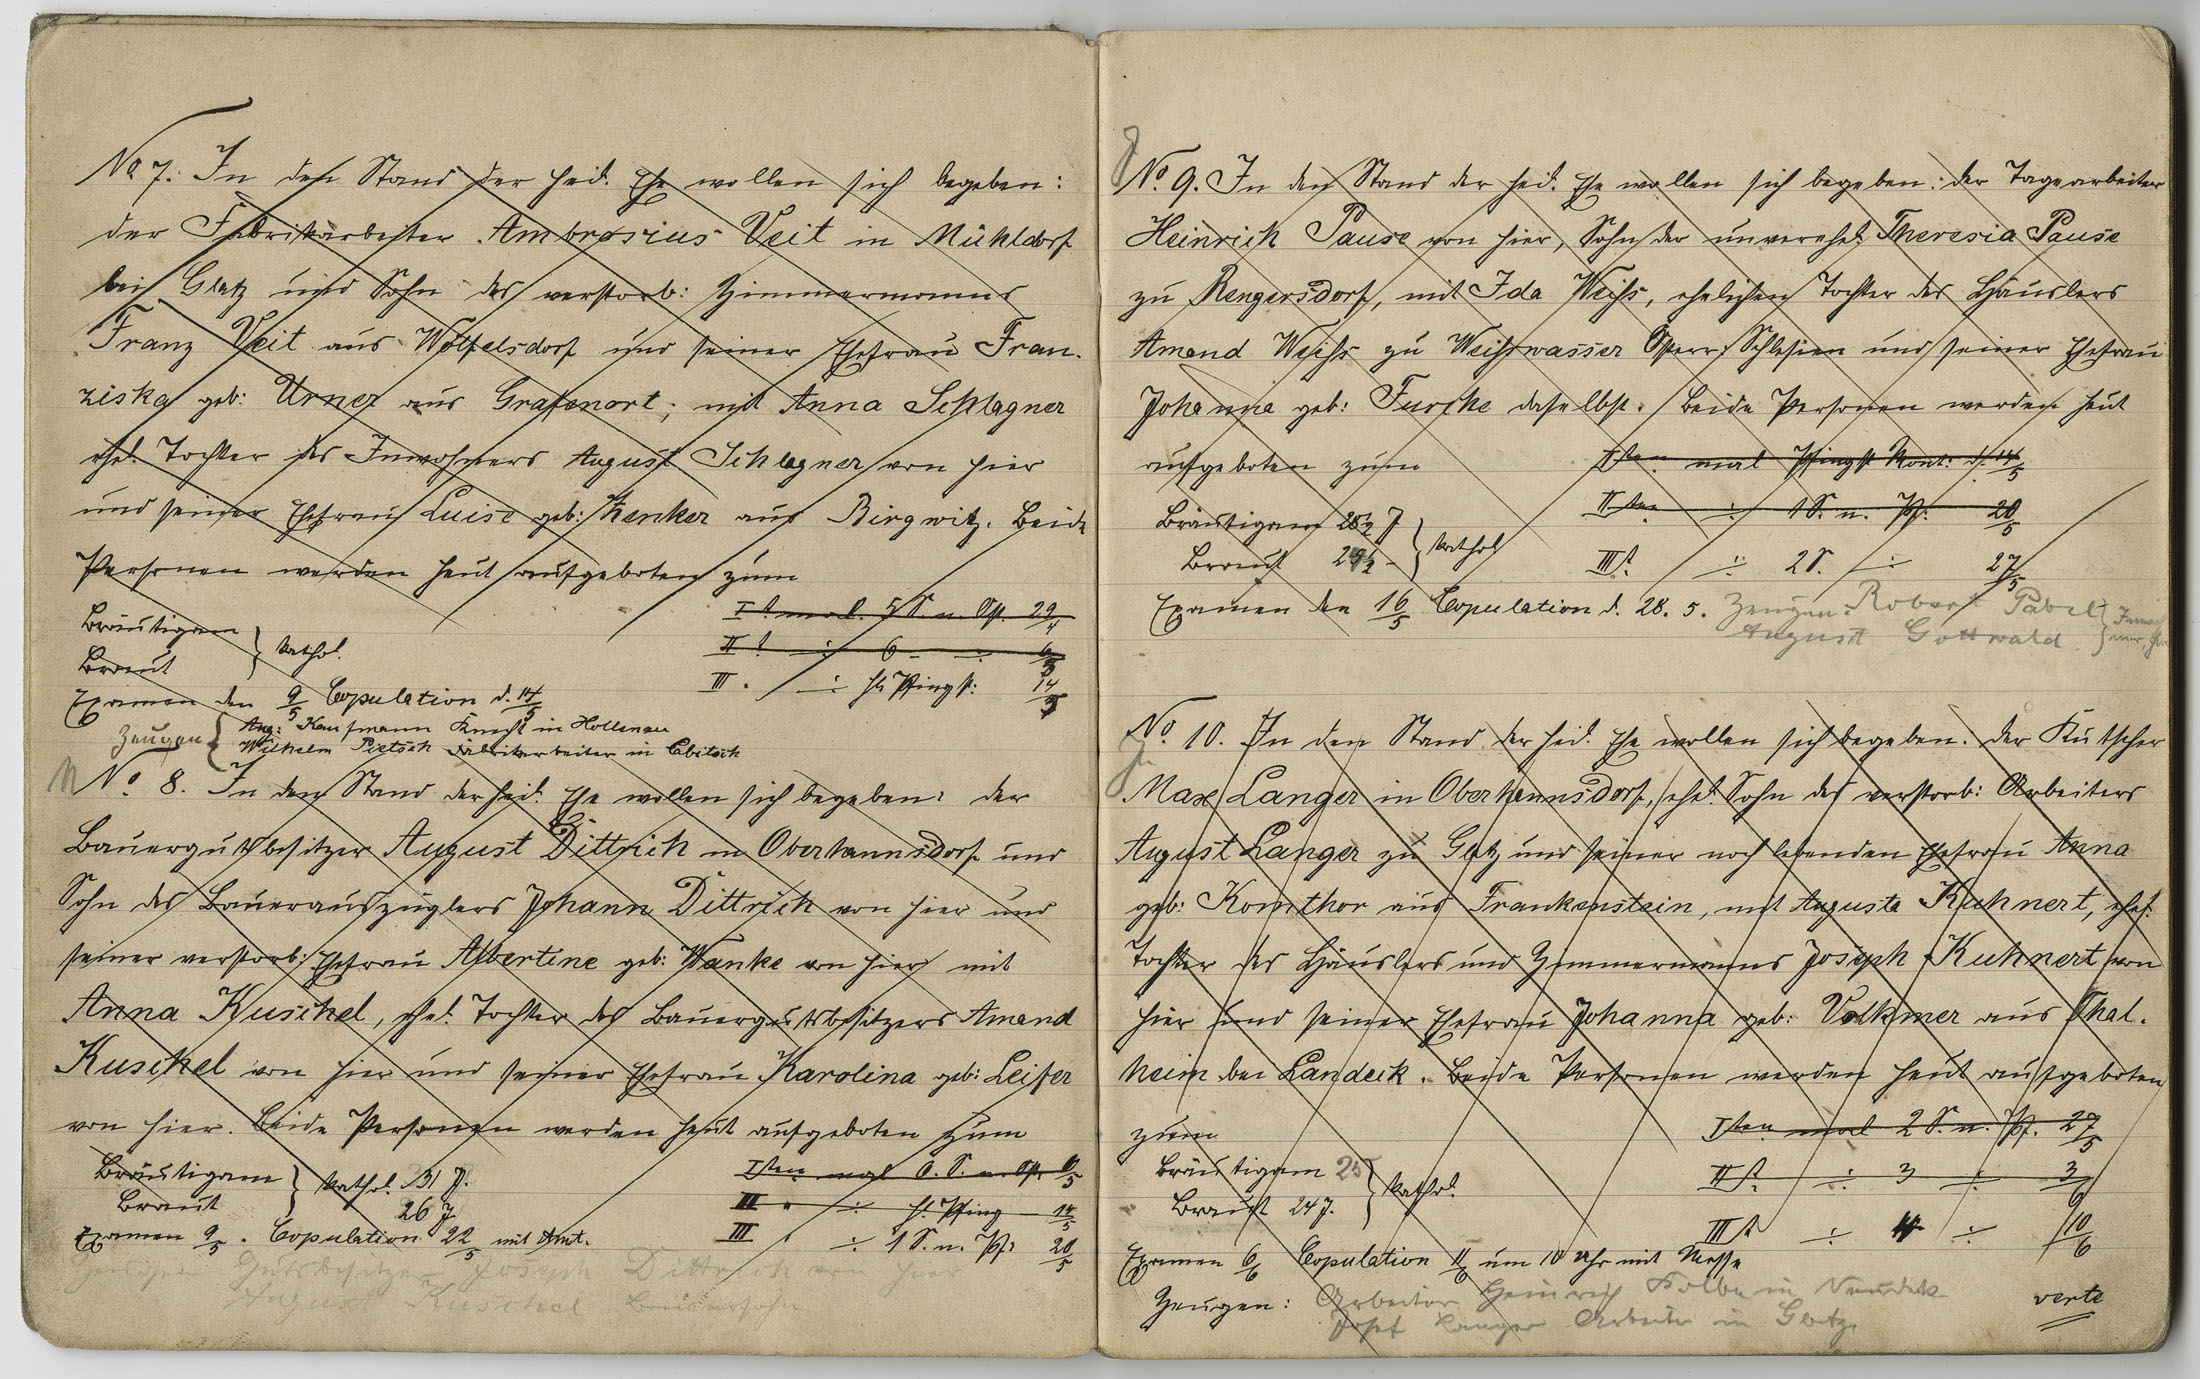 No 7. In den Stand der heil. Ehe wollen sich begeben:
der Fabrikarbeiter Ambrosius Veit in Mühldorf
bei Glatz und Sohn des verstorb: Zimmermanns
Franz Veit aus Wölfelsdorf und seiner Ehefrau Fran-
ziska geb: Urner aus Grafenort; mit Anna Schlagner
ehel. Tochter des Inwohners August Schlagner von hier
und seiner Ehefrau Luise geb: Zenker aus Birgwitz. Beide
Personen werden heut aufgeboten zum
Bräutigam
Braut } kathol.
I t. mal. 5 S. n. Ost. 29/4
II t. ÷ 6 ÷ 6/5
III. ÷ hl. Pfingst: 14/5
Examen den 9/5 Copulation d. 14/5
Zeugen { Aug: Kaufmann Knecht in Hollenau
Wilhelm Pietsch Fabrikarbeiter in Labitsch
No. 8. In den Stand der heil. Ehe wollen sich begeben: der
Bauergutsbesitzer August Dittrich in Oberhannsdorf und
Sohn des Bauerauszüglers Johann Dittrich von hier und
seiner verstorb: Ehefrau Albertine geb: Wanke von hier mit
Anna Kuschel, ehel. Tochter des Bauergutsbesitzers Amand
Kuschel von hier und seiner Ehefrau Karolina geb: Leifer
von hier. Beide Personen werden heut aufgeboten zum
Bräutigam
Braut } kathol. 31 J.
26 J
Iten mal 6. S. n. Ost. 6/5
II " ÷ hl. Pfing 14/5
III ' ÷ 1 S. n. Pf: 20/5
Examen 9/5. Copulation 22/5 mit Amt.
Zeugen: Gutsbesitzer Joseph Dittrich von hier
August Kuschel Bauersohn
No. 9. In den Stand der heil. Ehe wollen sich begeben: der Tagearbeiter
Heinrich Pause von hier, Sohn der unverehel. Theresia Pause
zu Rengersdorf, mit Ida Weiss, ehelichen Tochter des Häuslers
Amand Weiss zu Weisswasser Österr. Schlesien und seiner Ehefrau
Johanna geb: Furche daselbst. Beide Personen werden heut
aufgeboten zum
Iten mal Pfingst Mont: d. 14/5
IIten ÷ 1 S. n. Pf: 20/5
IIIt. ÷ 2 S. ÷ 27/5
Bräutigam 28½ J
Braut 29½ - } kathol
Examen den 16/5 Copulation d. 28. 5. Zeugen: Robert Pabel
August Gottwald }
No. 10. In den Stand der heil. Ehe wollen sich begeben: der Kutscher
Max Langer in Oberhannsdorf, ehel. Sohn des verstorb: Arbeiters
August Langer zu Glatz und seiner noch lebenden Ehefrau Anna
geb: Kornthor aus Frankenstein, mit Augusta Kuhnert, ehel.
Tochter des Häuslers und Zimmermanns Joseph Kuhnert von
hier und seiner Ehefrau Johanna geb: Volkmer aus Thal-
heim bei Landeck. Beide Personen werden heut aufgeboten
zum
Iten mal 2 S. n. Pf. 27/5
II t. ÷ 3 ÷ 3/6
III t ÷ 4 ÷ 10/6
Bräutigam 25
Braut 24 J. } kathol.
Examen 6/6 Copulation 11/6 um 10 Uhr mit Messe
Zeugen: Arbeiter Heinrich Kolbe in Neudeck
Josef Langer Arbeiter in Glatz.
verte